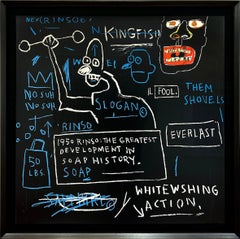 NEX(RINSO©)
KINGFISH
NO SUH
NO SUH
SLOGAN©
FOOL.
THEM
SHOVELS
RINSO
EVERLAST
50
LBS.
1950 RINSO: THE GREATEST
DEVELOPMENT IN
SOAP HISTORY.
SOAP
WHITEWSHING
ACTION.